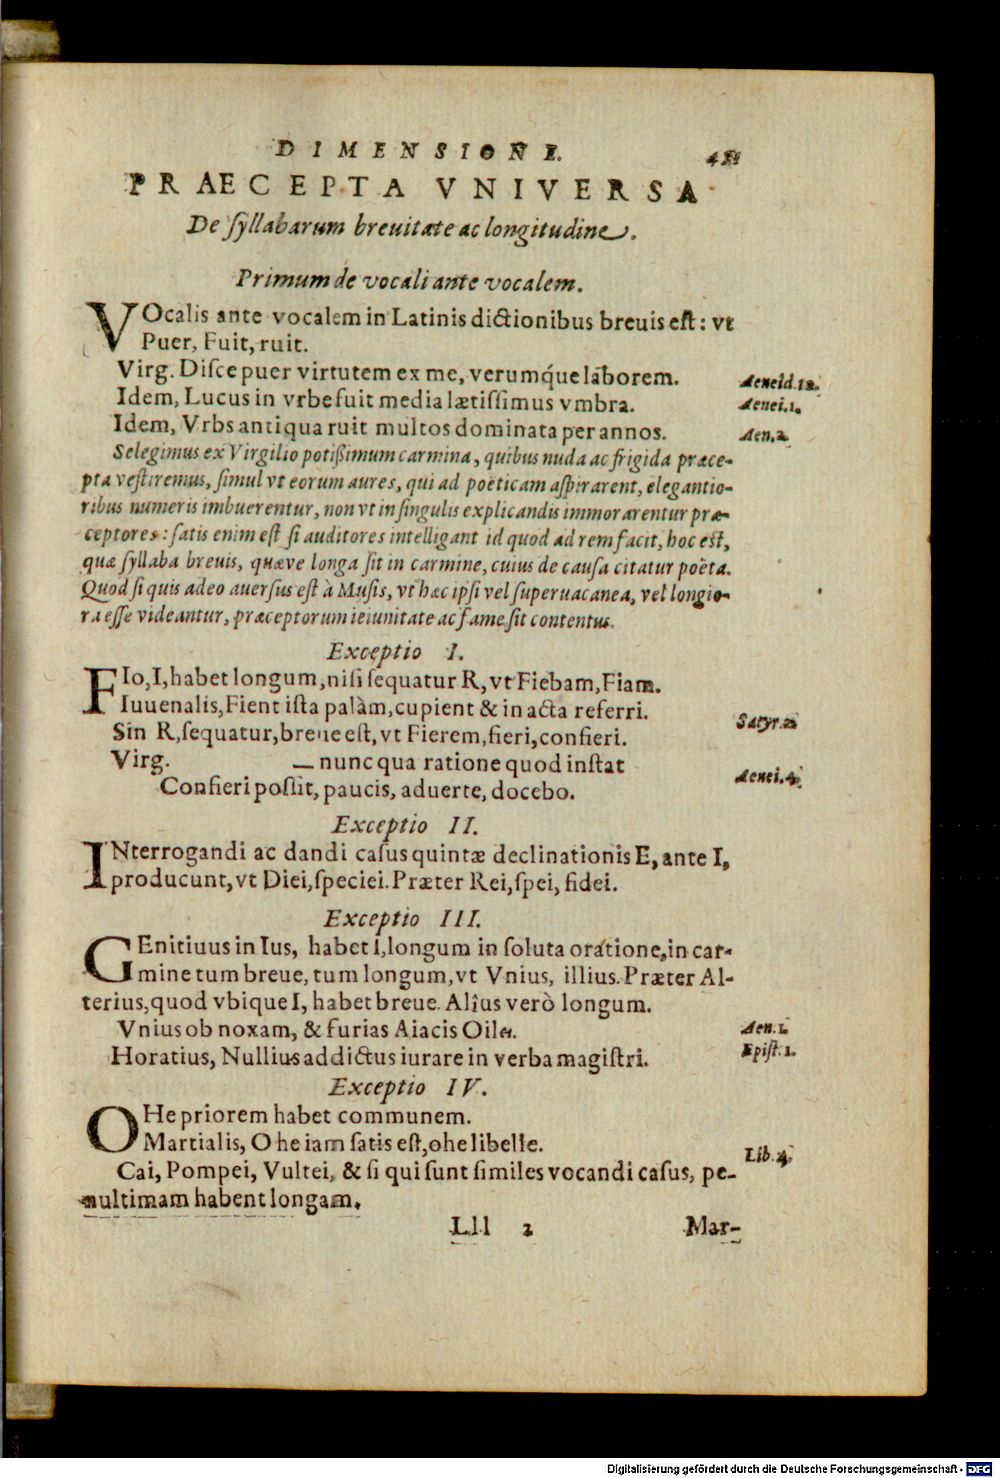 DIMENSIONE.
PRAECEPTA VNIVERSA
De ſyllabarum breuitate ac longitudine.
Primum de vocali ante vocalem.
VOcalis ante vocalem in Latinis dictionibus breuis eſt: vt
Puer, Fuit, ruit.
Virg. Diſce puer virtutem ex me, verumq́ue laborem. Aeneid. 12.
Idem, Lucus in vrbe fuit media lætiſſimus vmbra. Aenei. 1.
Idem, Vrbs antiqua ruit multos dominata per annos. Aen. 2.
Selegimus ex Virgilio potißimum carmina, quibus nuda ac frigida præce-
pta veſtiremus, ſimul vt eorum aures, qui ad poëticam aſpirarent, elegantio-
ribus numeris imbuerentur, non vt in ſingulis explicandis immorarentur præ-
ceptores: ſatis enim eſt ſi auditores intelligant id quod ad rem facit, hoc eſt,
quæ ſyllaba breuis, quæve longa ſit in carmine, cuius de cauſa citatur poëta.
Quod ſi quis adeo auerſus eſt à Muſis, vt hæc ipſi vel ſuperuacanea, vel longio-
ra eſſe videantur, præceptorum ieiunitate ac fame ſit contentus.
Exceptio I.
FIo, I, habet longum, niſi ſequatur R, vt Fiebam, Fiam.
Iuuenalis, Fient iſta palàm, cupient & in acta referri. Satyr. 2.
Sin R, ſequatur, breue eſt, vt Fierem, fieri, confieri.
Virg. — nunc qua ratione quod inſtat
Confieri poſſit, paucis, aduerte, docebo. Aenei. 4.
Exceptio II.
INterrogandi ac dandi caſus quintæ declinationis E, ante I,
producunt, vt Diei, ſpeciei. Præter Rei, ſpei, fidei.
Exceptio III.
GEnitiuus in Ius, habet I, longum in ſoluta oratione, in car-
mine tum breue, tum longum, vt Vnius, illius. Præter Al-
terius, quod vbique I, habet breue. Alîus verò longum.
Vnius ob noxam, & furias Aiacis Oilei. Aen. 1.
Horatius, Nullius addictus iurare in verba magiſtri. Epiſt. 1.
Exceptio IV.
OHe priorem habet communem.
Martialis, Ohe iam ſatis eſt, ohe libelle. Lib. 4.
Cai, Pompei, Vultei, & ſi qui ſunt ſimiles vocandi caſus, pe-
nultimam habent longam.
Lll 2 Mar-
Digitalisierung gefördert durch die Deutsche Forschungsgemeinschaft - DFG